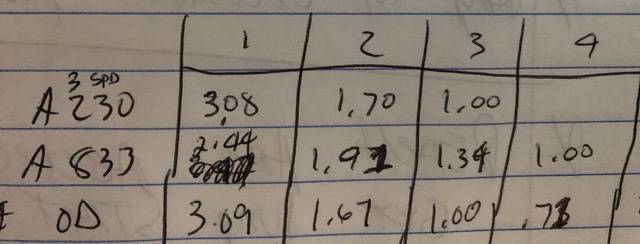 1 2 3 4
3 SPD
A 230 3.08 1.70 1.00
2.44
A 833 1.91 1.34 1.00
OD 3.09 1.67 1.00 .73